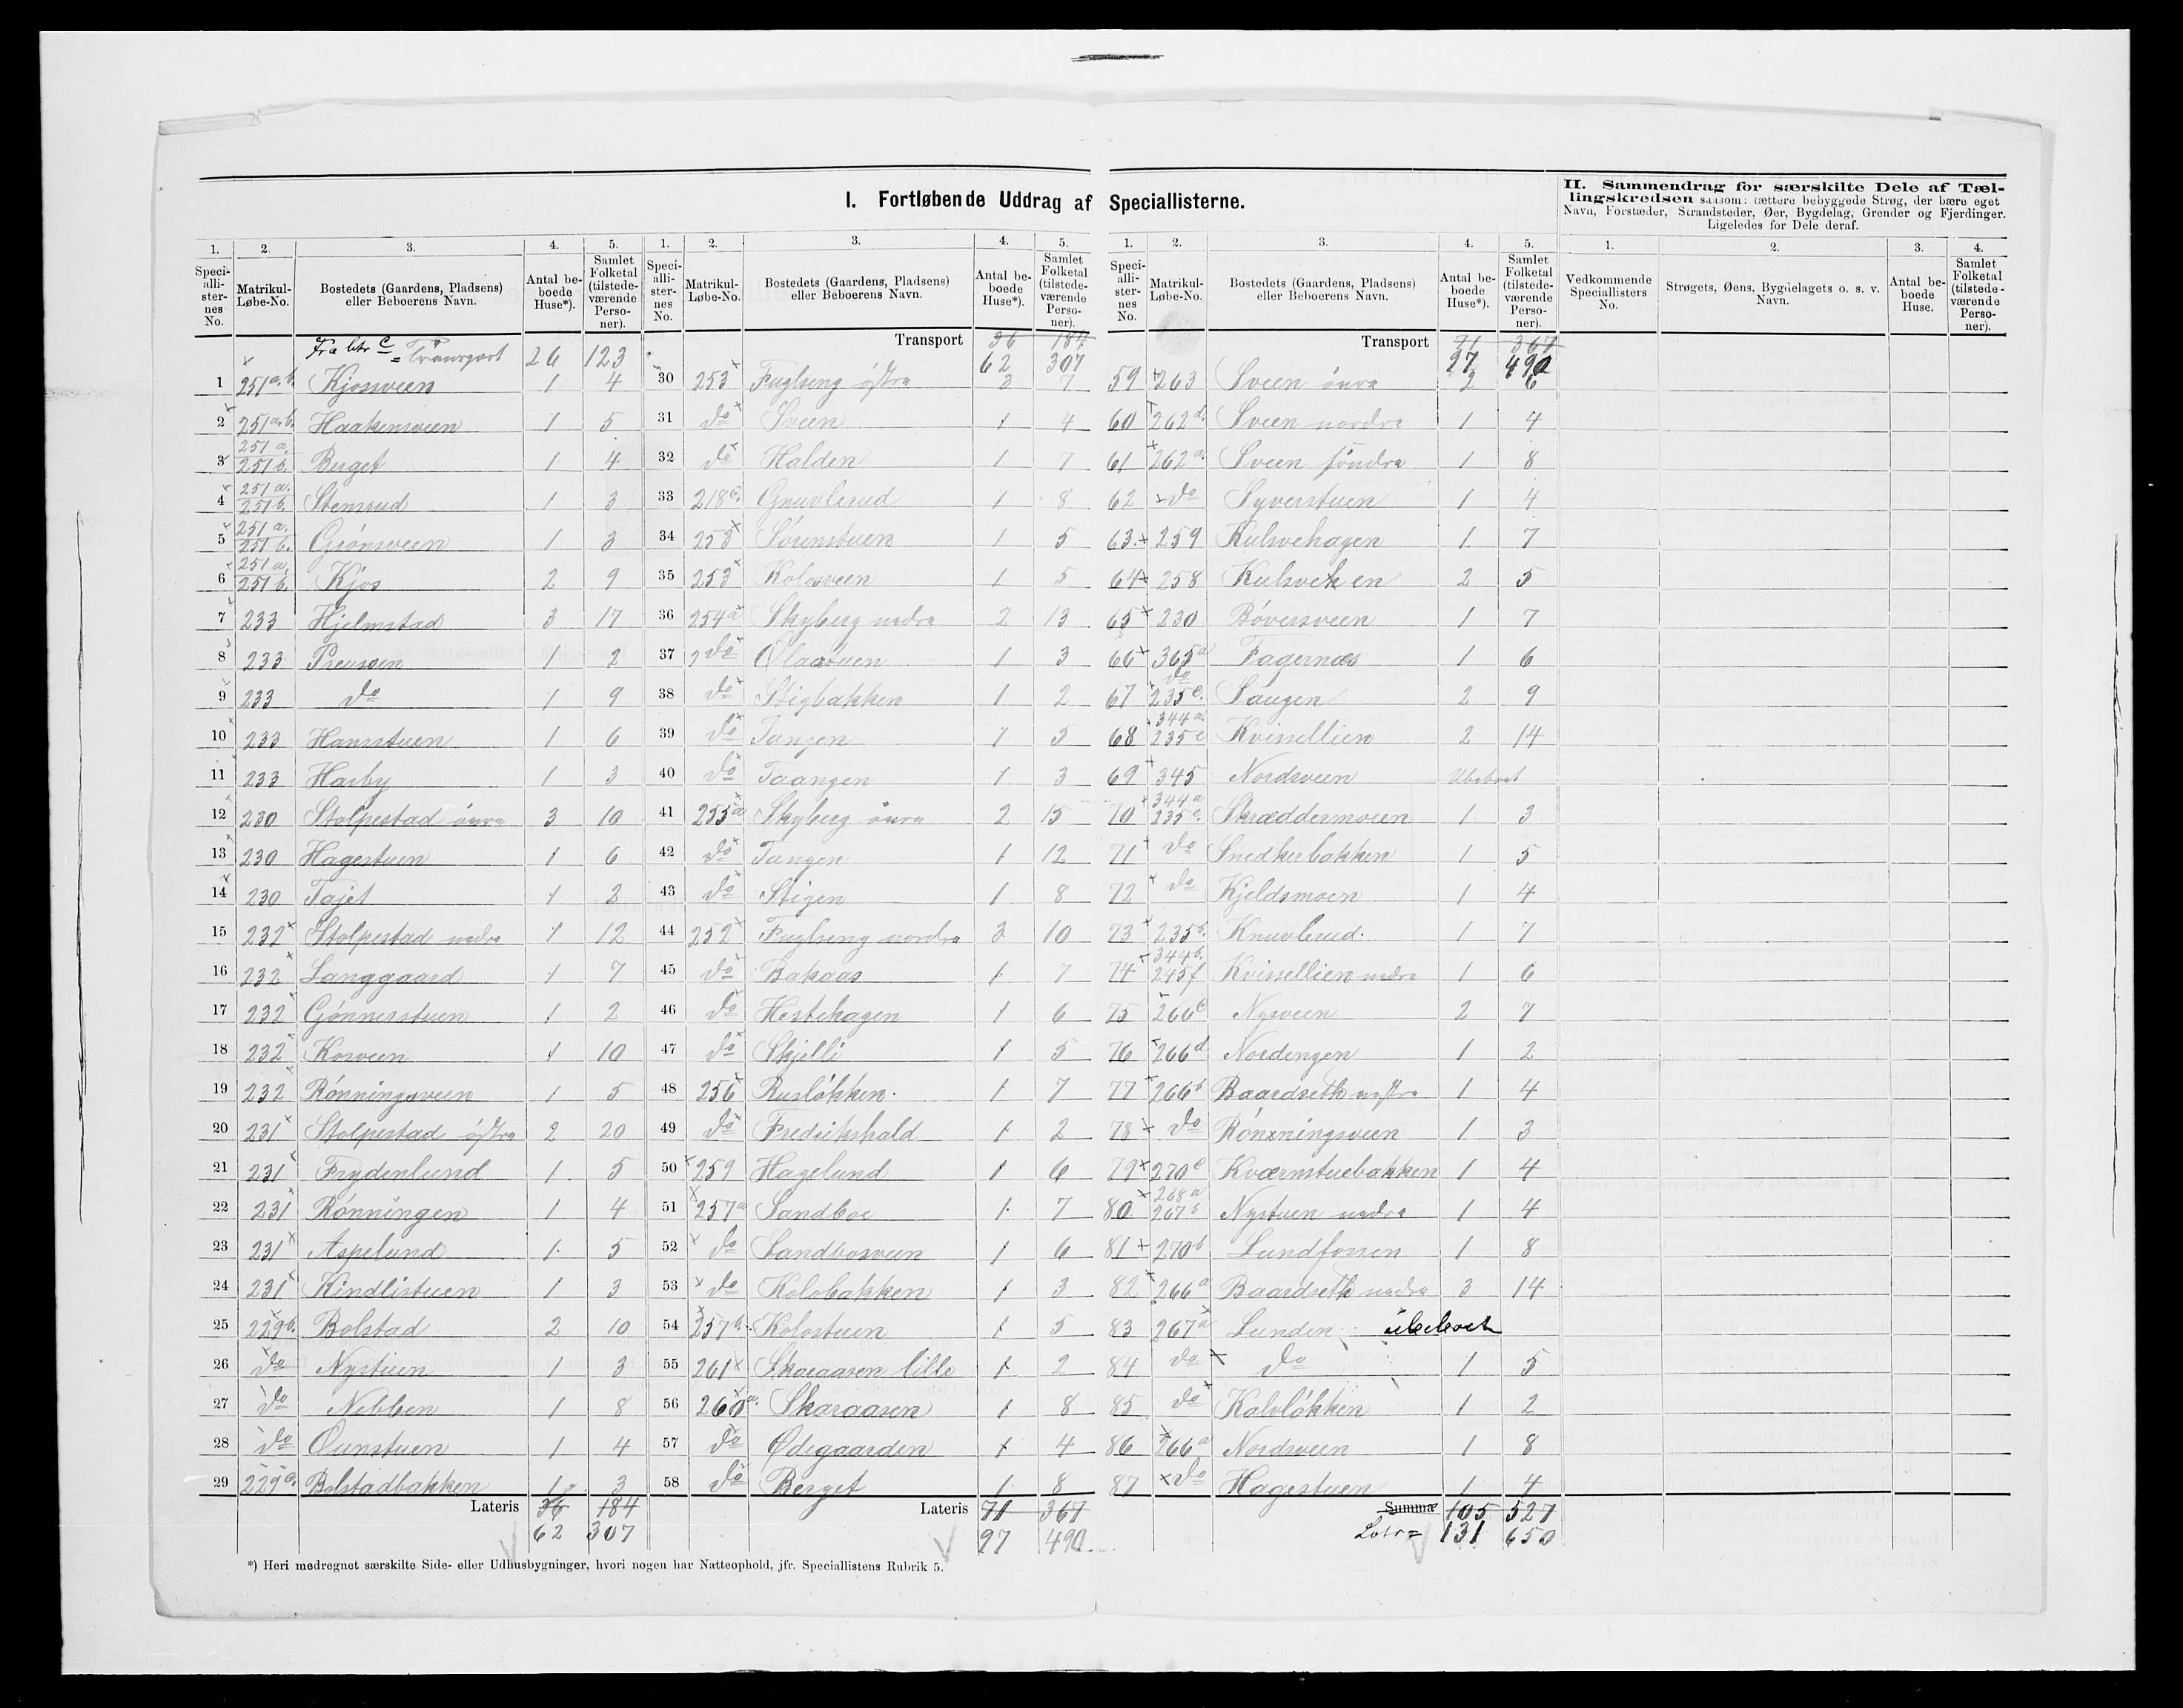 I. Fortløbende Uddrag af Speciallisterne.
II. Sammendrag for særskilte Dele af Tællingskredsen saasom: tættere bebyggede Strøg, der bære eget
Navn, Forstæder, Strandsteder, Øer, Bygdelag, Grender og Fjerdinger.
Ligeledes for Dele deraf.
1. 2. 3. 4. 5.
Speciallisternes No. Matrikul-Løbe-No. Bostedets (Gaardens, Pladsens) eller Beboerens Navn. Antal beboede Huse*). Samlet Folketal (tilstedeværende Personer).
Fra litr C = Transport 26 123
1 251a.b. Kjosveen 1 4
2 251a.b. Haakensveen 1 5
3 251a. 251b. Berget 1 4
4 251a. 251b. Stensrud 1 3
5 251a. 251b. Grønsveen 1 3
6 251a. 251b. Kjos 2 9
7 233 Hjelmstad 3 17
8 233 Preusen 1 2
9 233 do 1 9
10 233 Hansstuen 1 6
11 233 Haeby 1 3
12 230 Stolpestad øvre 3 10
13 230 Hagestuen 1 6
14 230 Tajet 1 2
15 232 Stolpestad nedre 1 12
16 232 Langgaard 1 7
17 232 Gjønnerstuen 1 2
18 232 Kosveen 1 10
19 232 Rønningsveen 1 5
20 231 Stolpestad østre 2 20
21 231 Frydenlund 1 5
22 231 Rønningen 1 4
23 231 Aspelund 1 5
24 231 Kindlistuen 1 3
25 229b. Bolstad 2 10
26 do Nystuen 1 3
27 do Nebben 1 8
28 do Ounstuen 1 4
29 229a. Bolstadbakken 1 3
Lateris 36 184
62 307
1. 2. 3. 4. 5.
Speciallisternes No. Matrikul-Løbe-No. Bostedets (Gaardens, Pladsens) eller Beboerens Navn. Antal beboede Huse*). Samlet Folketal (tilstedeværende Personer).
Transport 36 184
62 307
30 253 Fuglseng østre 3 7
31 do Sveen 1 4
32 do Halden 1 7
33 218c. Gnuvlerud 1 8
34 253 Sørenstuen 1 5
35 253 Kolosveen 1 5
36 254a Skyberg nedre 2 13
37 do Olastuen 1 3
38 do Stigbakken 1 2
39 do Tangen 1 5
40 do Taangen 1 3
41 255a Skyberg øvre 2 15
42 do Tangen 1 12
43 do Stigen 1 8
44 252 Fuglseng nordre 3 10
45 do Bakaas 1 7
46 do Hestehagen 1 6
47 do Skjelli 1 5
48 256 Rusløkken 1 7
49 do Fredrikshald 1 2
50 259 Hagelund 1 6
51 257a Sandboe 1 7
52 do Sandbosveen 1 6
53 do Kolobakken 1 3
54 257b. Kolostuen 1 5
55 261 Skaraasen lille 1 2
56 260a. Skaraasen 1 8
57 do Ødegaarden 1 4
58 do Berget 1 8
Lateris 71 367
97 490
1. 2. 3. 4. 5.
Speciallisternes No. Matrikul-Løbe-No. Bostedets (Gaardens, Pladsens) eller Beboerens Navn. Antal beboede Huse*). Samlet Folketal (tilstedeværende Personer).
Transport 71 367
97 490
59 263 Sveen øvre 2 6
60 262d. Sveen nordre 1 4
61 262a. Sveen søndre 1 8
62 do Syverstuen 1 4
63 259 Kulsvehagen 1 7
64 258 Kulsveken 2 5
65 230 Bøversveen 1 7
66 365a Fagernæs 1 6
67 do 235c. Saugen 2 9
68 344a. 235c Kvissellien 2 14
69 345 Nordsveen Ubeboet
70 344a 235c. Skræddermoen 1 3
71 do Snedkerbakken 1 5
72 do Kjeldsmoen 1 4
73 235b. Knuvlerud 1 7
74 344b. 245f Kvissellien nedre 1 6
75 266c Nysveen 2 7
76 266d Nordengen 1 2
77 266b Baardseth vestre 1 4
78 do Rønningsveen 1 3
79 270c Kværnstuebakken 1 4
80 268a 267b Nystuen nedre 1 4
81 270b Lundfossen 1 8
82 266a Baardseth nedre 3 14
83 267a Lunden ubeboet
84 do do 1 5
85 do Kalvløkken 1 2
86 266a Nordsveen 1 8
87 do Hagestuen 1 4
Summa 105 527
Latr = 131 650
1. 2. 3. 4.
Vedkommende Speciallisters No. Strøgets, Øens, Bygdelagets o. s. v. Navn. Antal beboede Huse. Samlet Folketal (tilstedeværende Personer).
*) Heri medregnet særskilte Side- eller Udhusbygninger, hvori nogen har Natteophold, jfr. Speciallistens Rubrik 5.